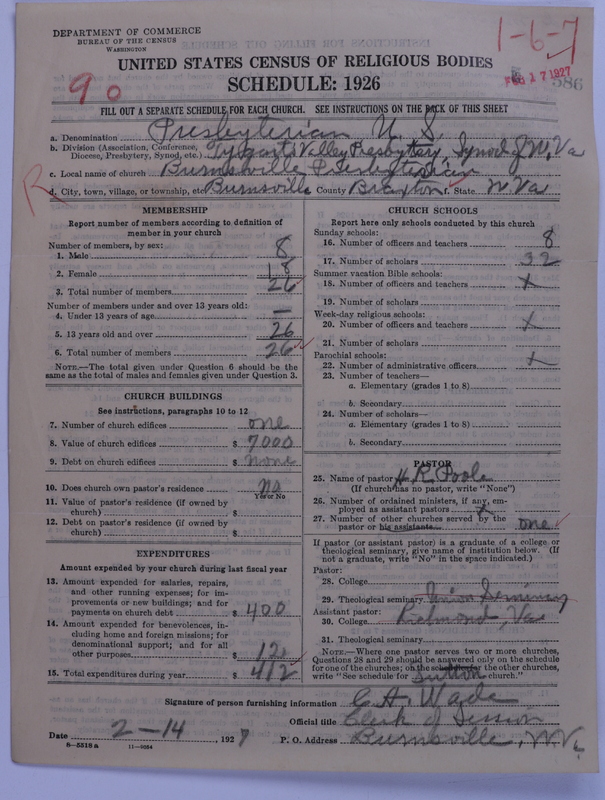 DEPARTMENT OF COMMERCE
BUREAU OF THE CENSUS
WASHINGTON
1-6-7
UNITED STATES CENSUS OF RELIGIOUS BODIES
SCHEDULE: 1926
90
FEB 17 1927
586
FILL OUT A SEPARATE SCHEDULE FOR EACH CHURCH. SEE INSTRUCTIONS ON THE BACK OF THIS SHEET
a. Denomination Presbyterian U.S.
b. Division (Association, Conference, Diocese, Presbytery, Synod, etc.) Tygarts Valley Presbytery, Synod of W. Va
c. Local name of church Burnsville Presbyterian
R d. City, town, village, or township, etc. Burnsville County Braxton f. State W. Va
MEMBERSHIP
Report number of members according to definition of
member in your church
Number of members, by sex:
1. Male 8
2. Female 18
3. Total number of members 26
Number of members under and over 13 years old:
4. Under 13 years of age —
5. 13 years old and over 26
6. Total number of members 26
NOTE.—The total given under Question 6 should be the
same as the total of males and females given under Question 3.
CHURCH BUILDINGS
See instructions, paragraphs 10 to 12
7. Number of church edifices one
8. Value of church edifices $ 7000
9. Debt on church edifices $ none
10. Does church own pastor's residence no
Yes or No
11. Value of pastor's residence (if owned by
church) $
12. Debt on pastor's residence (if owned by
church) $
EXPENDITURES
Amount expended by your church during last fiscal year
13. Amount expended for salaries, repairs,
and other running expenses; for im-
provements or new buildings; and for
payments on church debt $ 400
14. Amount expended for benevolences, in-
cluding home and foreign missions; for
denominational support; and for all
other purposes $ 12
15. Total expenditures during year $ 412
CHURCH SCHOOLS
Report here only schools conducted by this church
Sunday schools:
16. Number of officers and teachers 8
17. Number of scholars 32
Summer vacation Bible schools:
18. Number of officers and teachers x
19. Number of scholars
Week-day religious schools:
20. Number of officers and teachers x
21. Number of scholars
Parochial schools:
22. Number of administrative officers x
23. Number of teachers—
a. Elementary (grades 1 to 8)
b. Secondary
24. Number of scholars—
a. Elementary (grades 1 to 8)
b. Secondary
PASTOR
25. Name of pastor H. R. Poole
(If church has no pastor, write "None")
26. Number of ordained ministers, if any, em-
ployed as assistant pastors x
27. Number of other churches served by the
pastor or his assistants one
If pastor (or assistant pastor) is a graduate of a college or
theological seminary, give name of institution below. (If
not a graduate, write "No" in the space indicated.)
Pastor:
28. College
29. Theological seminary Union Seminary
Assistant pastor:
30. College Richmond, Va
31. Theological seminary
NOTE.—Where one pastor serves two or more churches,
Questions 28 and 29 should be answered only on the schedule
for one of the churches; on the schedules for the other churches,
write "See schedule for Sutton church."
Signature of person furnishing information C. H. Wade
Official title Clerk of Session
Date 2-14, 1927 P. O. Address Burnsville, W. Va.
8-5518a 11-9054